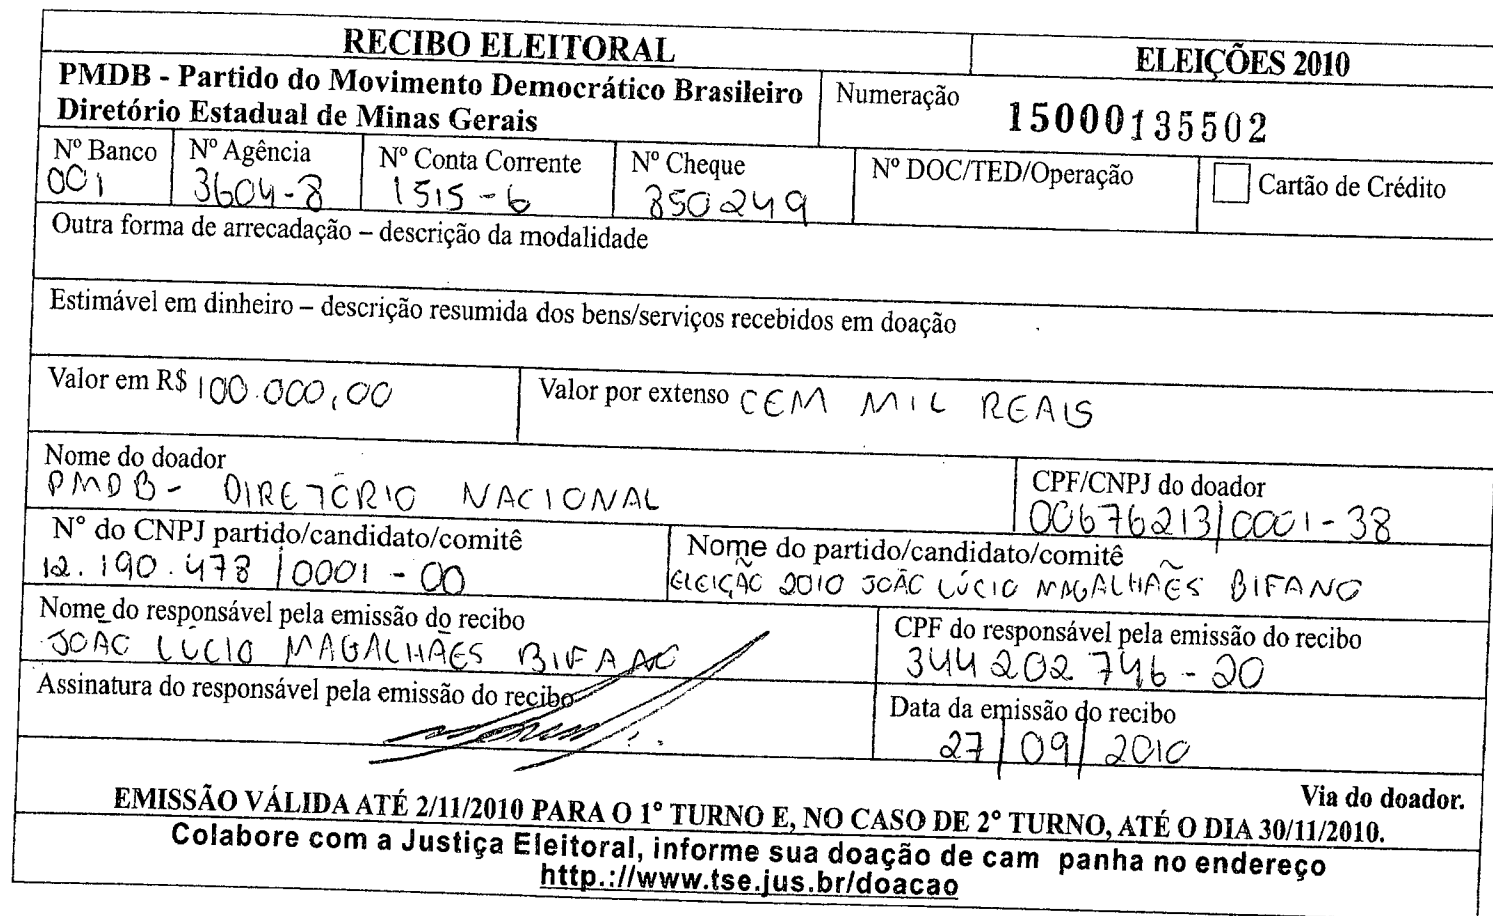 RECIBO ELEITORAL
ELEIÇÕES 2010
PMDB - Partido do Movimento Democrático Brasileiro
Diretório Estadual de Minas Gerais
Numeração 15000135502
Nº Banco
001
Nº Agência
3604-8
Nº Conta Corrente
1515-6
Nº Cheque
850249
Nº DOC/TED/Operação
Cartão de Crédito
Outra forma de arrecadação – descrição da modalidade
Estimável em dinheiro – descrição resumida dos bens/serviços recebidos em doação
Valor em R$ 100.000,00
Valor por extenso CEM MIL REAIS
Nome do doador
PMDB - DIRETÓRIO NACIONAL
CPF/CNPJ do doador
00676213/0001-38
N° do CNPJ partido/candidato/comitê
12.190.478/0001-00
Nome do partido/candidato/comitê
ELEIÇÃO 2010 JOÃO LÚCIO MAGALHÃES BIFANO
Nome do responsável pela emissão do recibo
JOÃO LÚCIO MAGALHÃES BIFANO
CPF do responsável pela emissão do recibo
344202746-20
Assinatura do responsável pela emissão do recibo
Data da emissão do recibo
27/09/2010
Via do doador.
EMISSÃO VÁLIDA ATÉ 2/11/2010 PARA O 1° TURNO E, NO CASO DE 2° TURNO, ATÉ O DIA 30/11/2010.
Colabore com a Justiça Eleitoral, informe sua doação de cam panha no endereço
http.://www.tse.jus.br/doacao